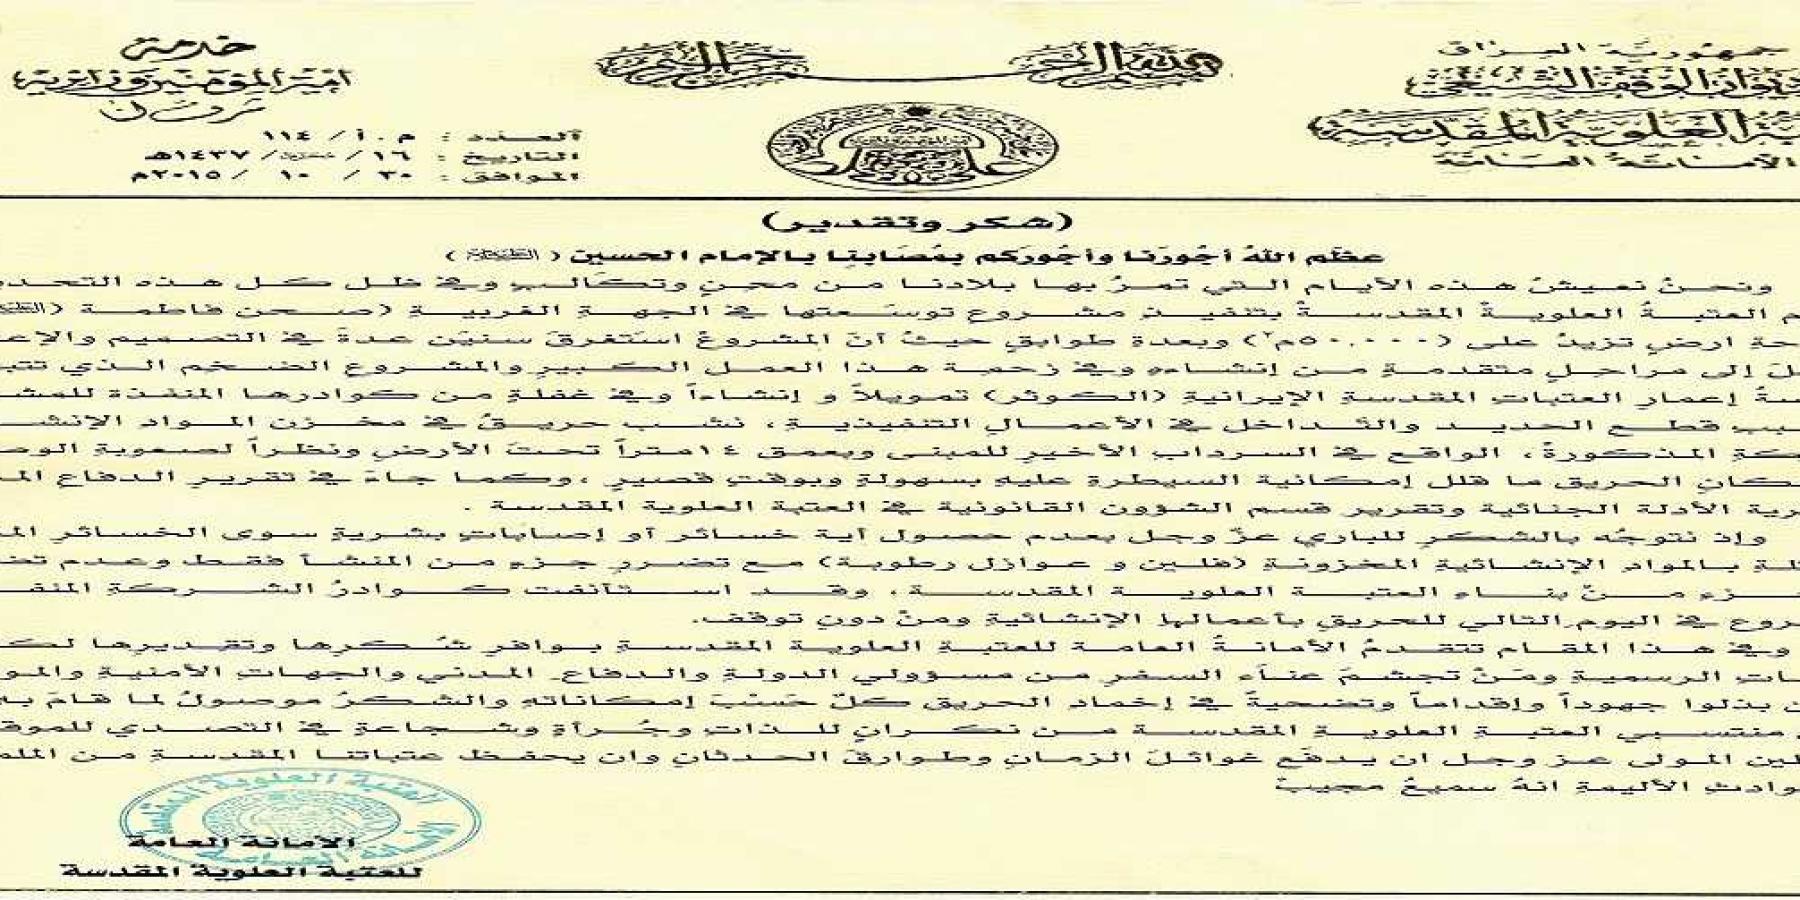 جمهورية العراق
ديوان الوقف الشيعي
العلوية المقدسة
الأمانة العامة
بسم الله الرحمن الرحيم
خدمة
امير المؤمنين وزائريه
شرف لنا
العدد : م .أ / ١١٤
التاريخ : ١٦ / محرم / ١٤٣٧هـ
الموافق : ٣٠ / ١٠ / ٢٠١٥م
(شكر وتقدير)
عظّم اللهُ أجُورَنا وأجُورَكم بمُصَابِنا بالإمام الحسين
ونحنُ نعيشُ هذه الأيام التي تمرُ بها بلادنا من محنٍ وتكالبٍ وفي ظل كل هذه
العتبةُ العلويةُ المقدسةُ بتنفيذ مشروع توسعتها في الجهة الغربية (صحن فاطمة
ارضٍ تزيدُ على (٥٠,٠٠٠م٢) وبعدة طوابقٍ حيثُ أنّ المشروعَ استغرقَ سنيَن عدةَ في التصميم
إلى مراحلٍ متقدمةٍ من إنشاءهِ وفي زحمة هذا العمل الكبيرِ والمشروع الضخم الذي
إعمارِ العتبات المقدسةِ الإيرانية (الكوثر) تمويلاً و إنشاءاً وفي غفلةٍ من كوادرها المنفذة
قطع الحديد والتّداخل في الأعمالِ التنفيذية، نشب حريقٌ في مخزن المواد
المذكورةُ، الواقع في السرداب الأخيرِ للمبنى وبعمق ١٤متراً تحتَ الأرضِ ونظراً لصعوبة
الحريق ما قلل إمكانية السيطرة عليهِ بسهولةٍ وبوقتٍ قصيرٍ ،وكما جاءَ في تقريرِ الدفاع
الأدلة الجنائية وتقرير قسم الشؤون القانونية في العتبة العلوية المقدسة .
وإذ نتوجّه بالشكر للباري عزّ وجل بعدم حصول أية خسائر أو إصاباتٍ بشريةٍ سوى الخسائر
بالمواد الإنشائية المخزونة (فلين و عوازل رطوبة) مع تضررِ جزءٍ من المنشأ فقط وعدم
منْ بناء العتبة العلوية المقدسة، وقد استأنفت كوادرُ الشركة
في اليوم التالي للحريقِ بأعمالها الإنشائيةِ ومنْ دونِ توقفٍ.
وفي هذا المقام تتقدمُ الأمانةُ العامة للعتبة العلوية المقدسة بوافرِ شُكرِها وتقديرِها
الرسميةِ ومَنْ تجشمَ عناءَ السفرِ من مسؤولي الدولةِ والدفاع المدني والجهات الأمنيةِ
بذلوا جهوداً وإقداماً وتضحيةً في إخماد الحريق كلٌ حَسْبَ إمكاناتهِ والشكرُ موصولٌ لما قامَ
منتسبي العتبة العلوية المقدسة من نكرانٍ للذات وجُرأةٍ وشجاعةٍ في التصدي
المولى عز وجل ان يدفَع غوائلَ الزمانِ وطوارقَ الحدثانِ وان يحفظ عتباتنا المقدسة من
الأليمةِ انهُ سميعٌ مجيبٌ
العتبة العلوية المقدسة
الأمانة العامة
الأمانة العامة
للعتبة العلوية المقدسة